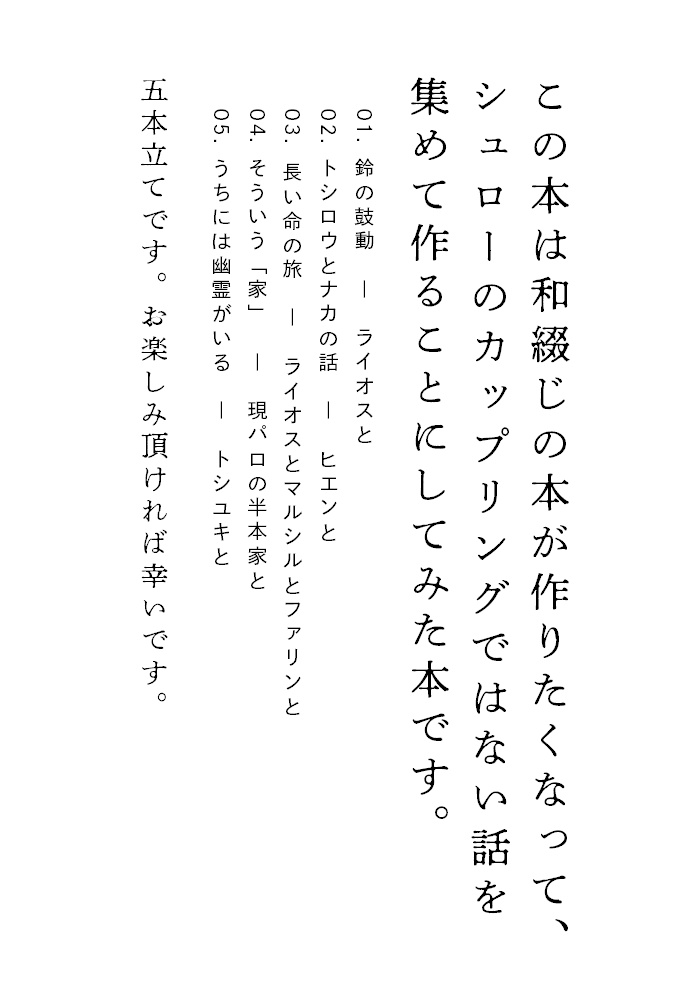 この本は和綴じの本が作りたくなって、
シュローのカップリングではない話を
集めて作ることにしてみた本です。
01. 鈴の鼓動 ― ライオスと
02. トシロウとナカの話 ― ヒエンと
03. 長い命の旅 ― ライオスとマルシルとファリンと
04. そういう「家」 ― 現パロの半本家と
05. うちには幽霊がいる ― トシユキと
五本立てです。お楽しみ頂ければ幸いです。